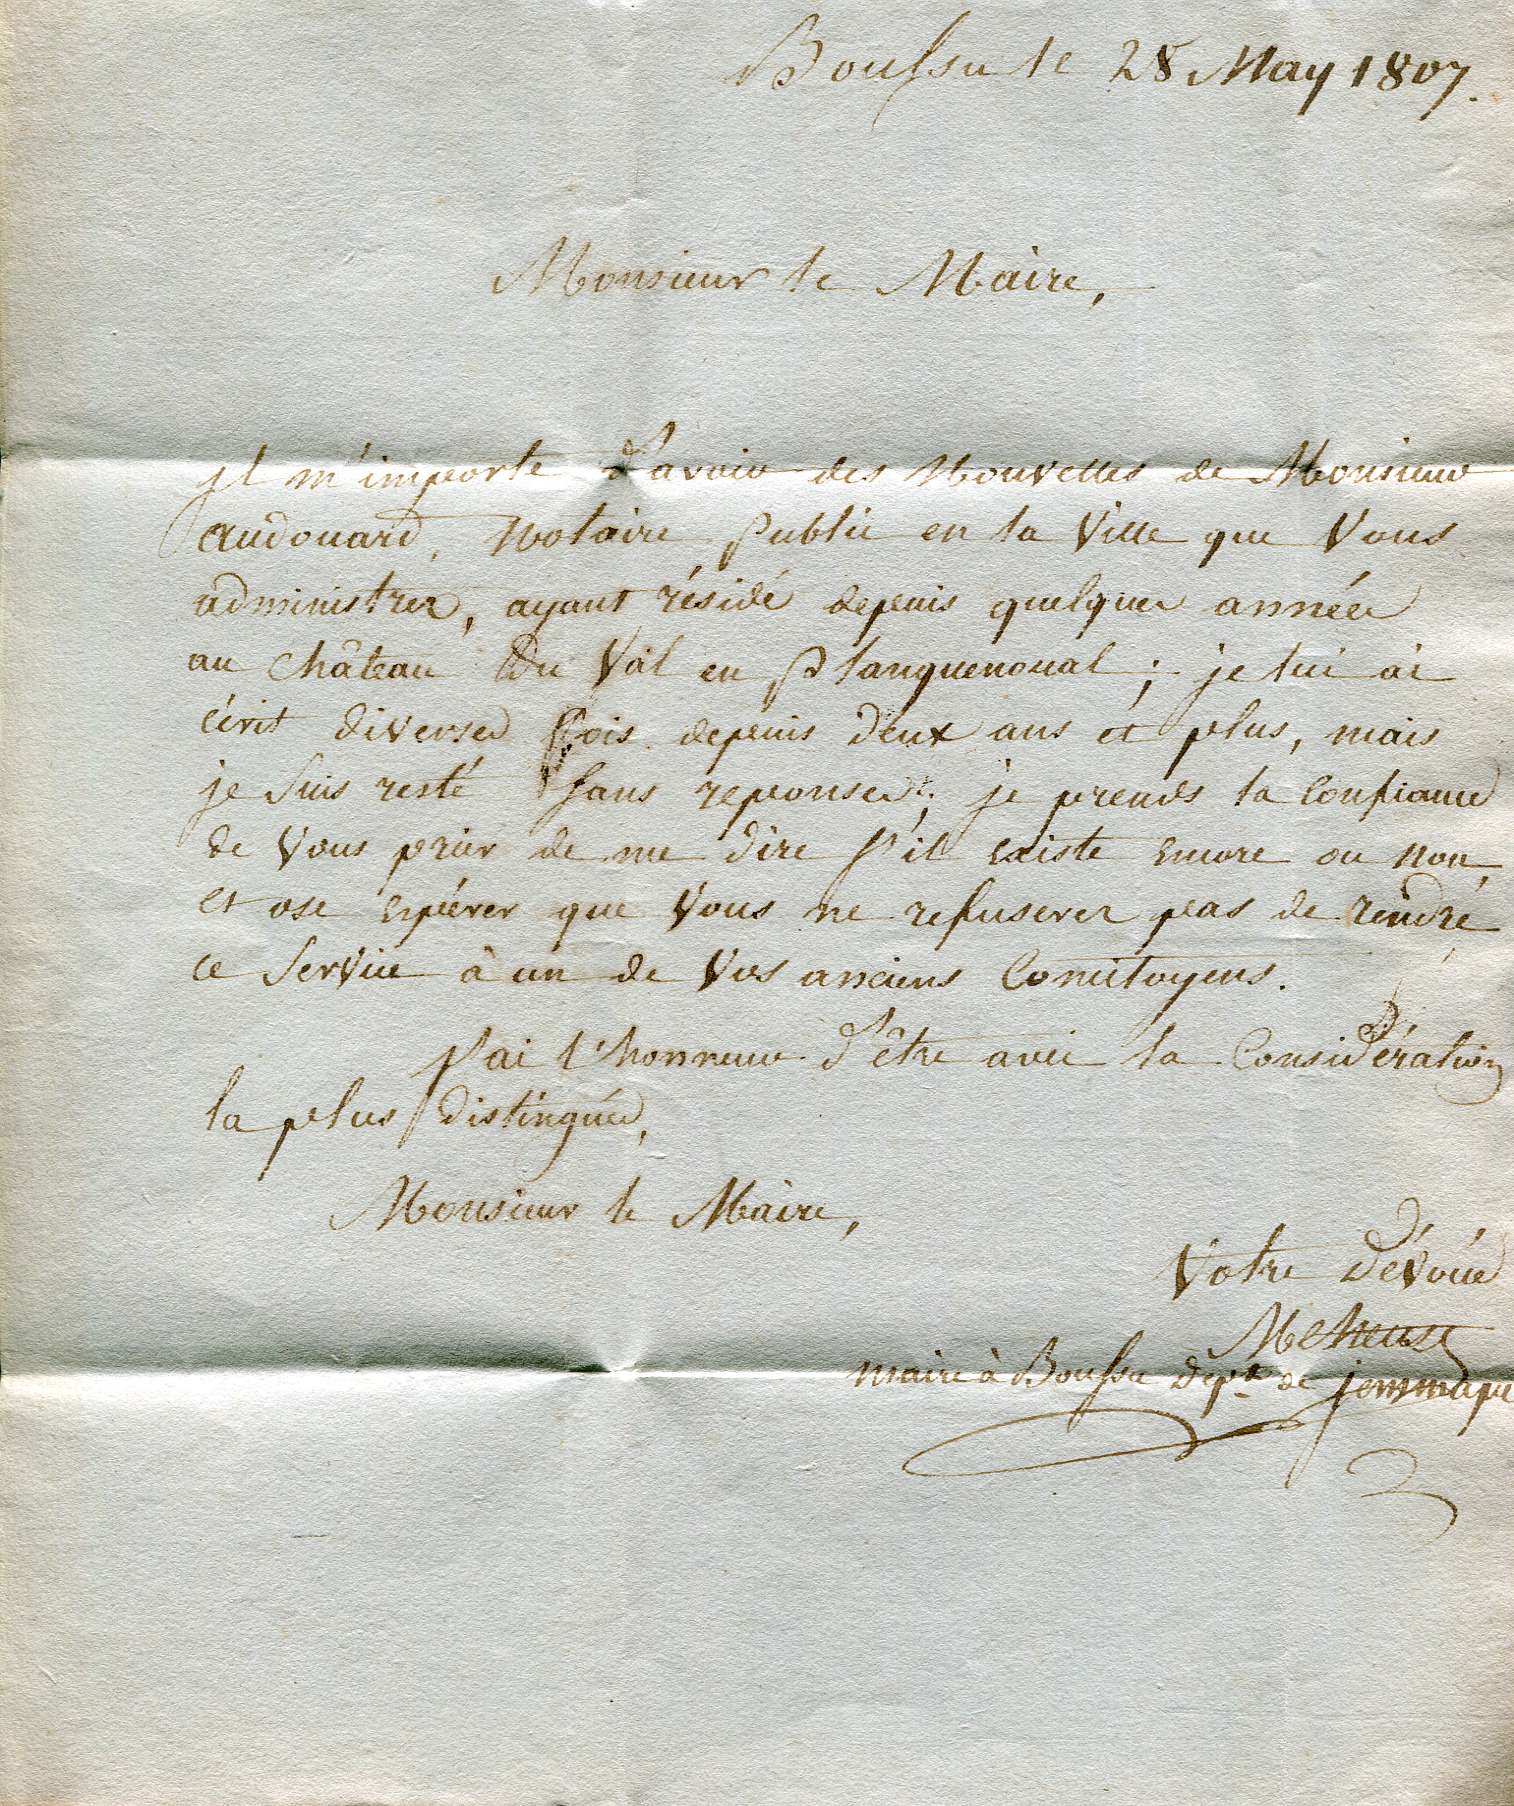 Boussu le 28 May 1807.
Monsieur le Maire,
jl m'importe d'avoir des Nouvelles de Monsieur
audouard, Notaire Public en la Ville que Vous
administrez, ayant résidé depuis quelques années
au Château du Val en Planquenoual ; je lui ai
écrit diverses fois depuis deux ans et plus, mais
je suis resté sans reponses ; je prends la Confiance
de Vous prier de me dire s'il existe encore ou non,
et ose espérer que Vous ne refuserez pas de rendre
ce Service à un de Vos anciens Concitoyens.
j'ai l'honneur d'être avec la Considération
la plus distinguée,
Monsieur le Maire,
Votre dévoué
maire à Boussu depte. de jemmape